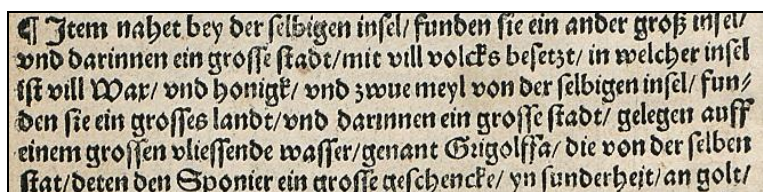 ¶ Item nahet bey der selbigen insel/ funden sie ein ander groß insel/
vnd darinnen ein grosse stadt/mit vill volcks besetzt/ in welcher insel
ist vill Wax/ vnd honigk/ vnd zwue meyl von der selbigen insel/ fun⸗
den sie ein grosses landt/vnd darinnen ein grosse stadt/ gelegen auff
einem grossen vliessende wasser/genant Grigolffa/ die von der selben
stat/deten den Sponier ein grosse geschencke/ yn sunderheit/an golt/